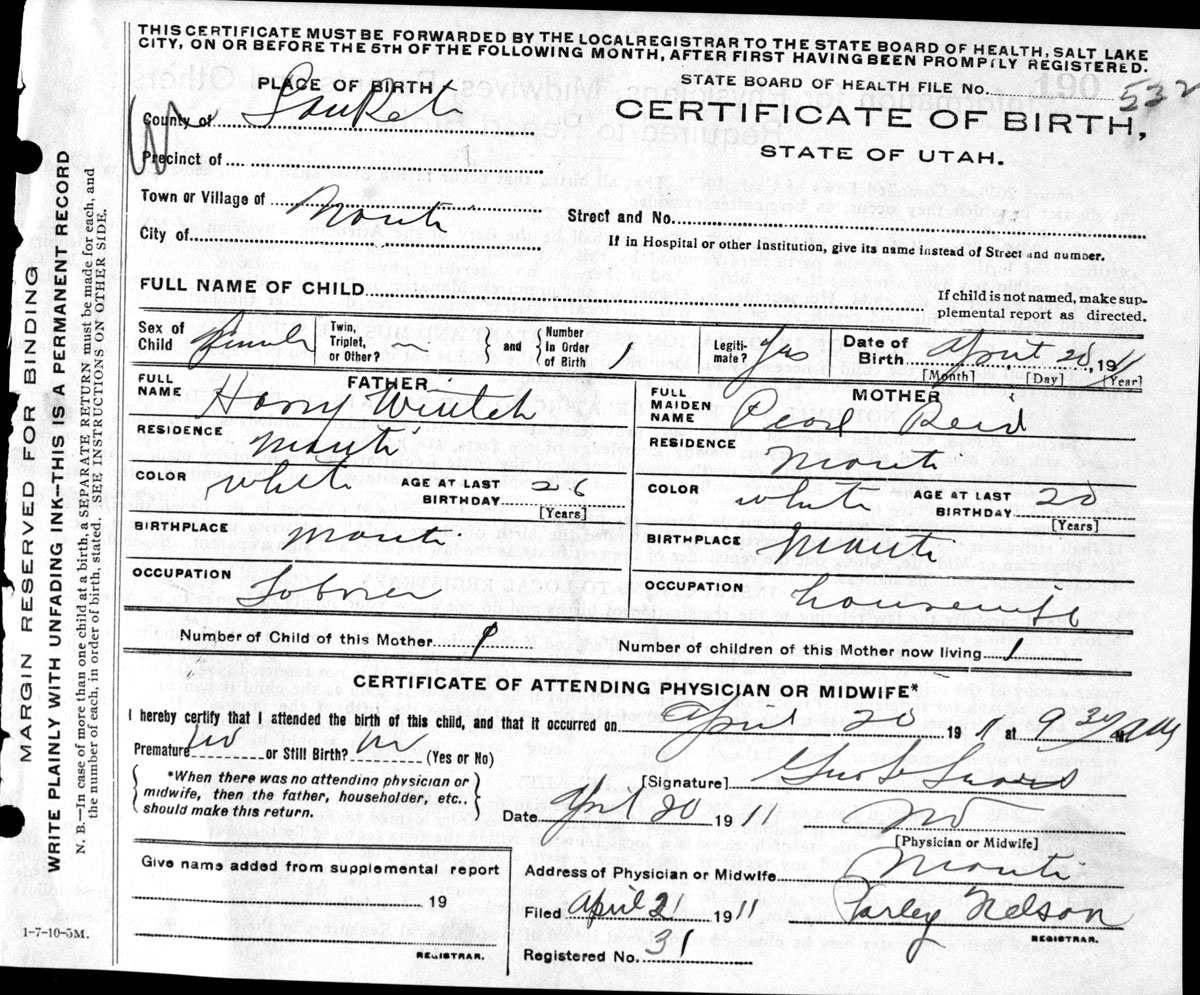 THIS CERTIFICATE MUST BE FORWARDED BY THE LOCAL REGISTRAR TO THE STATE BOARD OF HEALTH, SALT LAKE
CITY, ON OR BEFORE THE 5TH OF THE FOLLOWING MONTH, AFTER FIRST HAVING BEEN PROMPTLY REGISTERED.
STATE BOARD OF HEALTH FILE NO. 532
PLACE OF BIRTH
CERTIFICATE OF BIRTH,
STATE OF UTAH.
County of SanPete
Precinct of
Town or Village of Manti
Street and No.
City of
If in Hospital or other Institution, give its name instead of Street and number.
FULL NAME OF CHILD
If child is not named, make sup-
plemental report as directed.
Sex of Child Female
Twin, Triplet, or Other?
and
Number in Order of Birth 1
Legiti- mate? Yes
Date of Birth April 20, 1911
[Month] [Day] [Year]
FATHER
FULL NAME Harry
RESIDENCE Manti
COLOR white AGE AT LAST BIRTHDAY 26
[Years]
BIRTHPLACE Manti
OCCUPATION Laborer
MOTHER
FULL MAIDEN NAME Pearl Reid
RESIDENCE Manti
COLOR white AGE AT LAST BIRTHDAY 20
(Years)
BIRTHPLACE Manti
OCCUPATION housewife
Number of Child of this Mother 1
Number of children of this Mother now living 1
CERTIFICATE OF ATTENDING PHYSICIAN OR MIDWIFE*
I hereby certify that I attended the birth of this child, and that it occurred on April 20 1911 at 9 30 A M
Premature no or Still Birth? no (Yes or No)
*When there was no attending physician or
midwife, then the father, householder, etc.,
should make this return.
[Signature] Geo L
Date April 20 1911
MD
[Physician or Midwife]
Give name added from supplemental report
19
REGISTRAR.
Address of Physician or Midwife Manti
Filed April 21 1911 Parley Nelson
REGISTRAR.
Registered No. 31
1-7-10-5M.
MARGIN RESERVED FOR BINDING
WRITE PLAINLY WITH UNFADING INK—THIS IS A PERMANENT RECORD
N. B.—In case of more than one child at a birth, SEPARATE RETURN must be made for each, and
the number of each, in order of birth, stated. SEE INSTRUCTIONS ON OTHER SIDE.